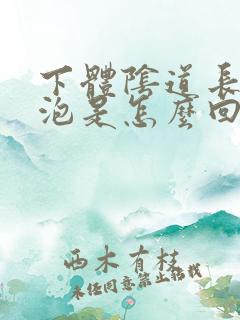 下體陰道長
泡是怎麼回
西木有桂
未经同意禁止搬找